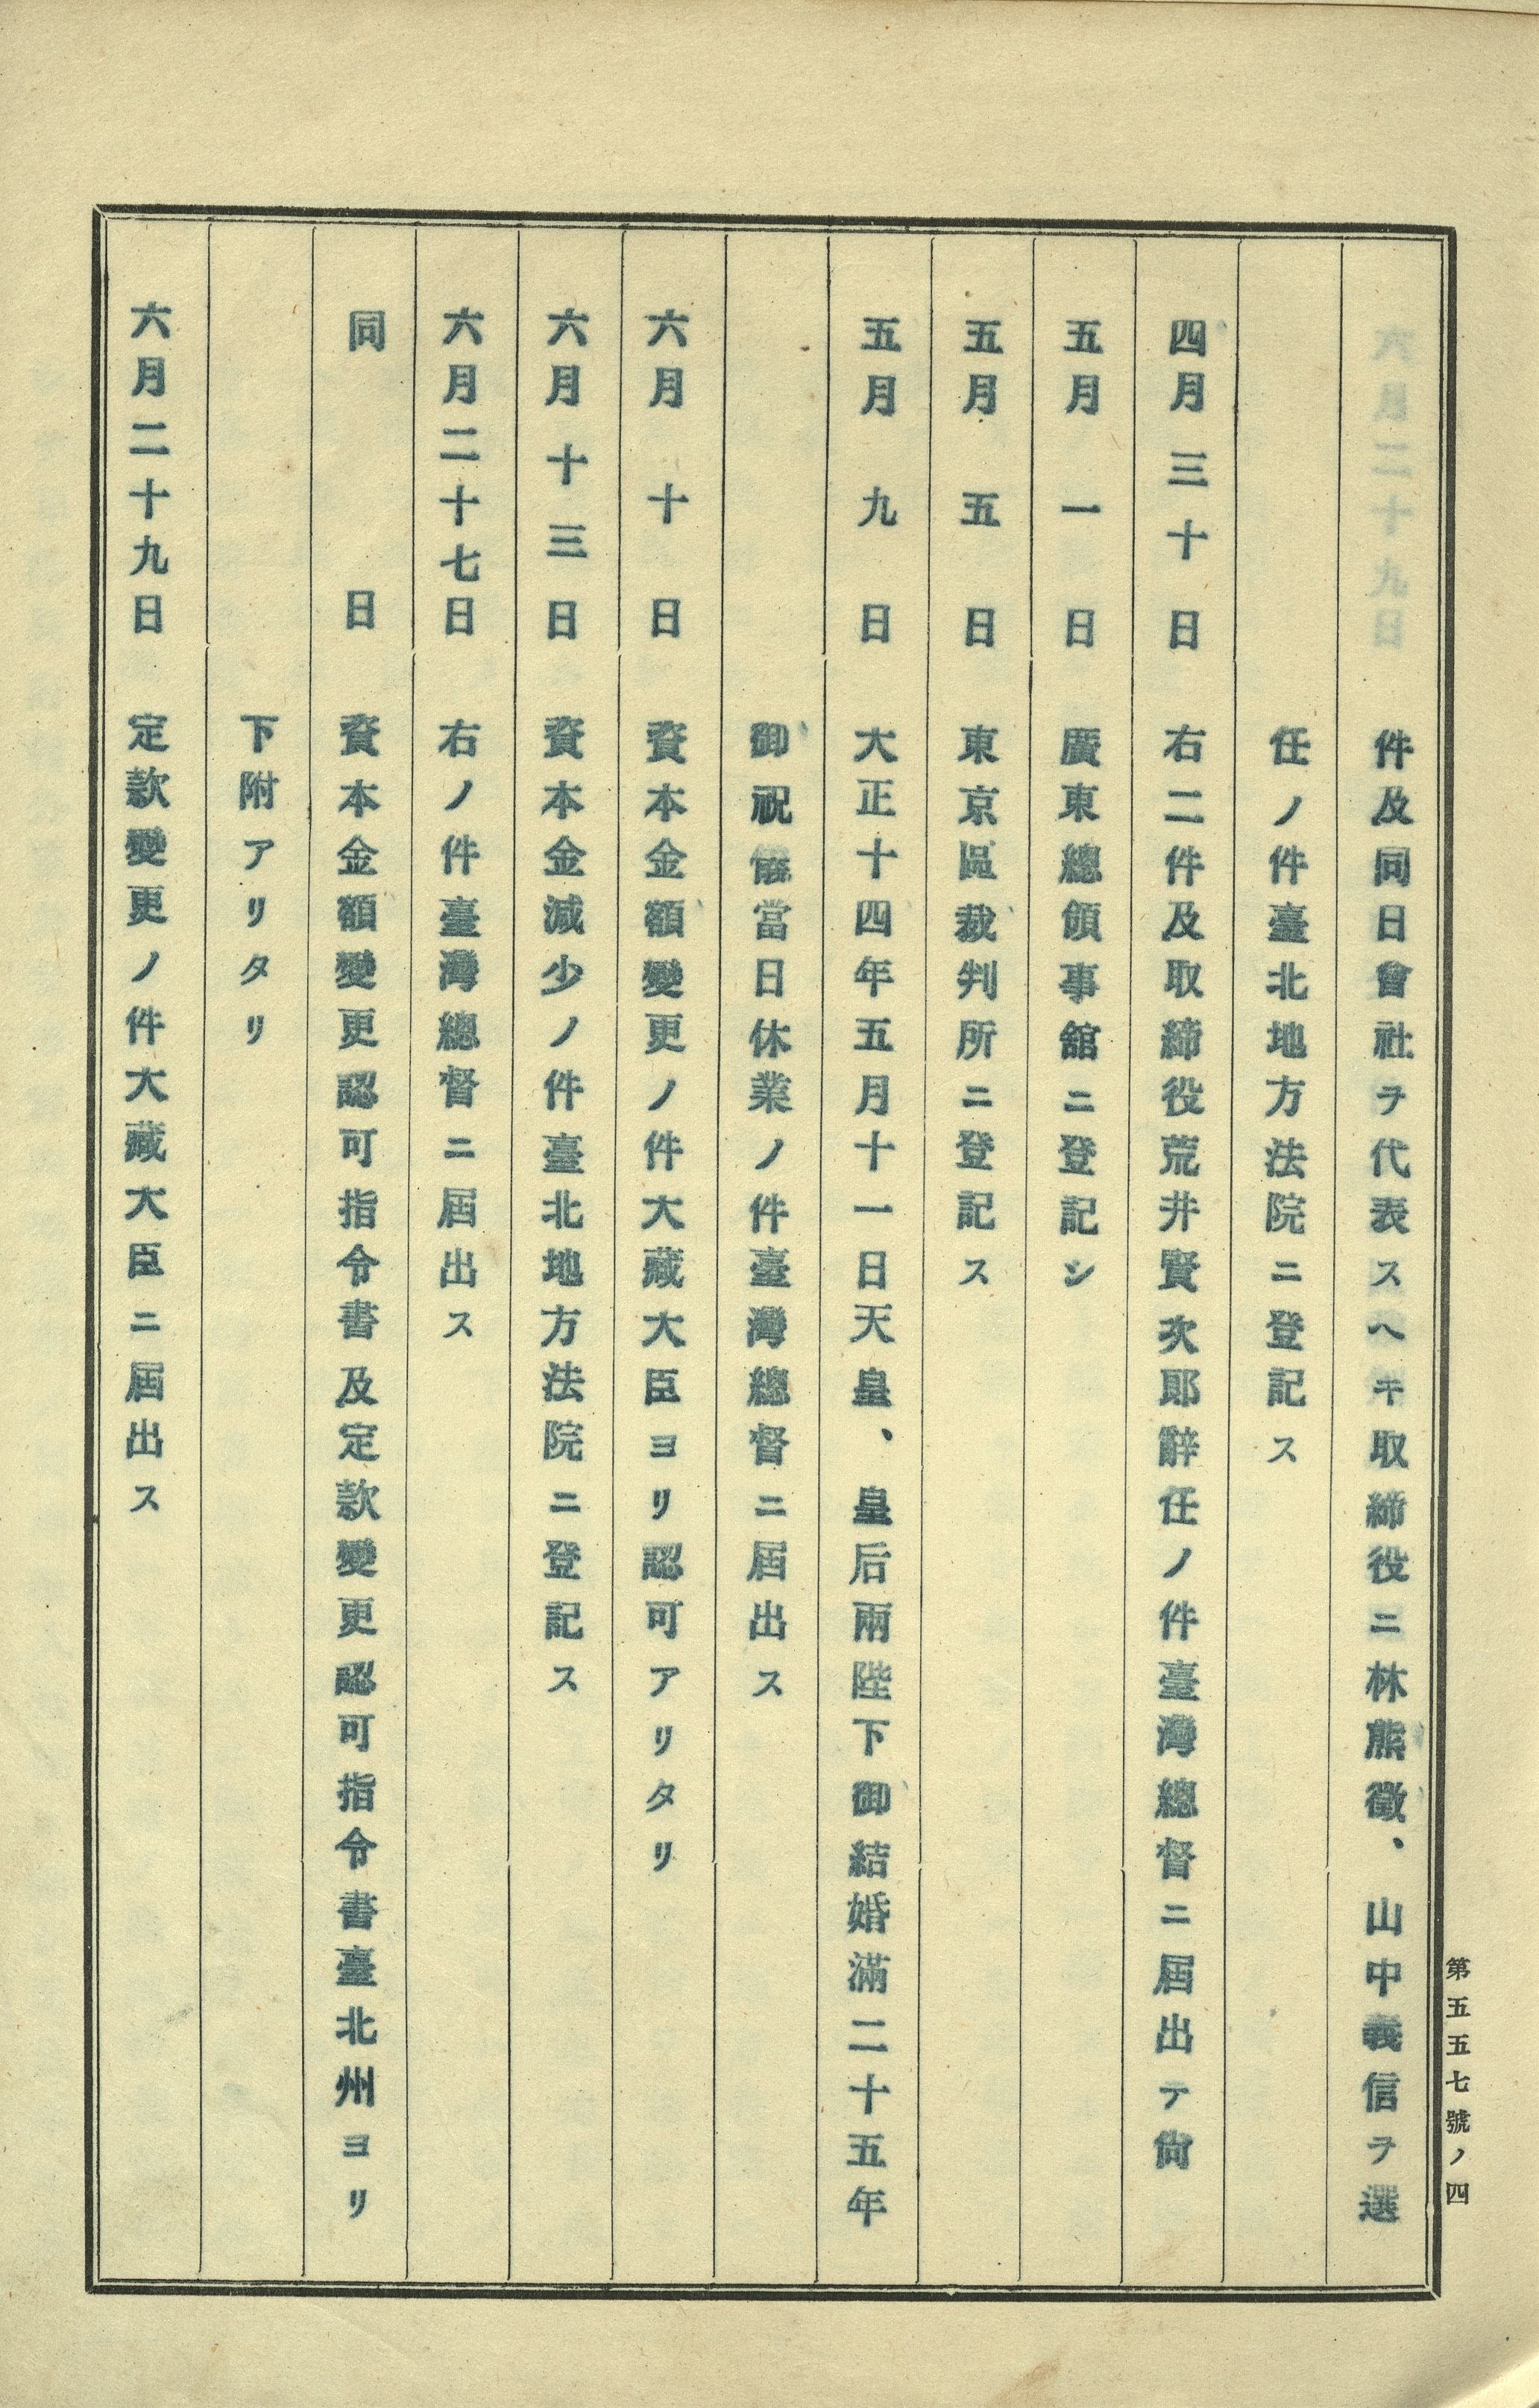 件及同日會社ヲ代表スヘキ取締役ニ林熊徵、山中義信ヲ選
任ノ件臺北地方法院ニ登記ス
四月三十日 右二件及取締役荒井賢次郎辭任ノ件臺灣總督ニ屆出テ尙
五月一日 廣東總領事館ニ登記シ
五月五日 東京區裁判所ニ登記ス
五月九日 大正十四年五月十一日天皇、皇后兩陛下御結婚滿二十五年
御祝 當日休業ノ件臺灣總督ニ屆出ス
六月十日 資本金額變更ノ件大藏大臣ヨリ認可アリタリ
六月十三日 資本金減少ノ件臺北地方法院ニ登記ス
六月二十七日 右ノ件臺灣總督ニ屆出ス
同日 資本金額變更認可指令書及定款變更認可指令書臺北州ヨリ
下附アリタリ
六月二十九日 定款變更ノ件大藏大臣ニ屆出ス
第五五七號ノ四